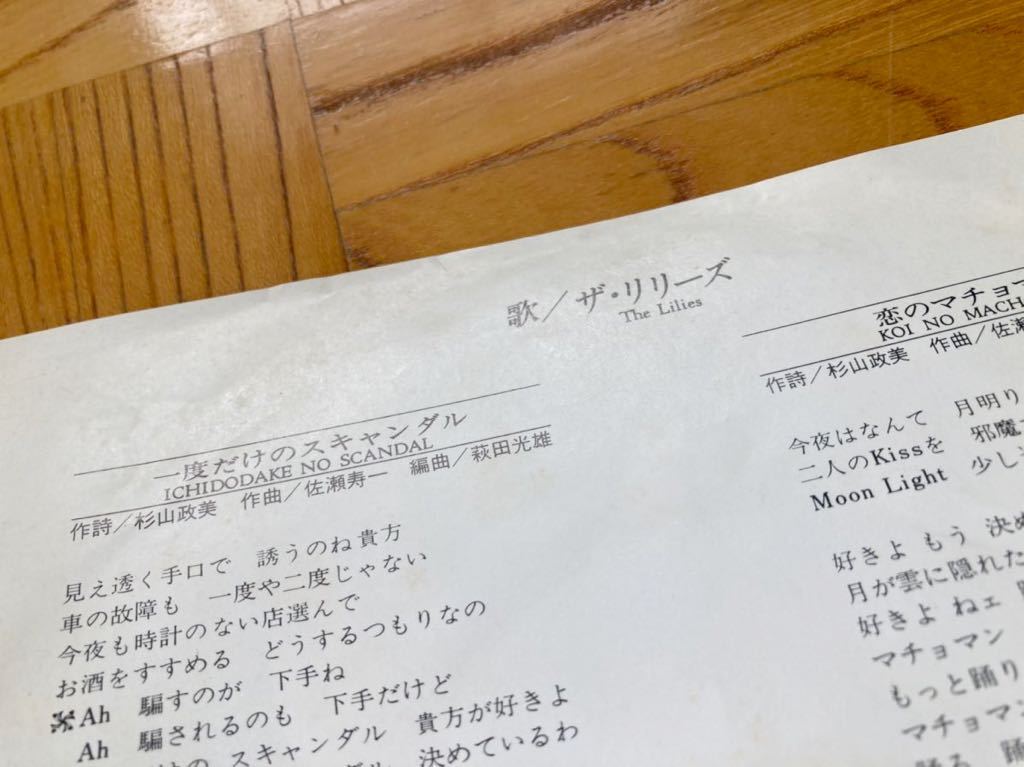 歌／ザ・リリーズ
The Lilies
一度だけのスキャンダル
ICHIDODAKE NO SCANDAL
作詩／杉山政美　作曲／佐瀬寿一　編曲／萩田光雄
見え透く手口で　誘うのね貴方
車の故障も　一度や二度じゃない
今夜も時計のない店選んで
お酒をすすめる　どうするつもりなの
※Ah　騙すのが　下手ね
Ah　騙されるのも　下手だけど
スキャンダル　貴方が好きよ
決めているわ
恋のマチョマ
KOI NO MACH
作詩／杉山政美　作曲／佐瀬
今夜はなんて　月明り
二人のKissを　邪魔
Moon Light　少し
好きよ もう 決め
月が雲に隠れた
好きよ ねェ
マチョマン
もっと踊り
マチョマン
踊る 踊